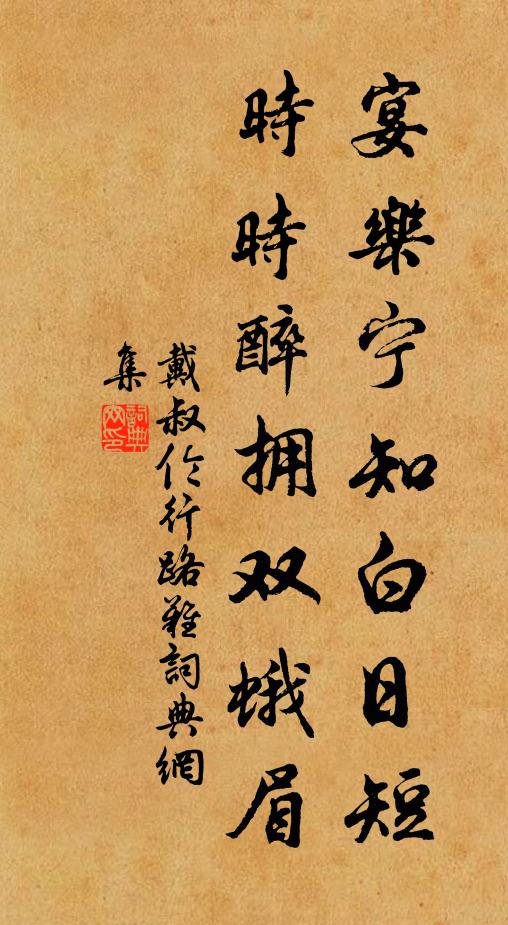 宴樂宁知白日短
時時醉拥双蛾眉
戴叔伦行路難詞典網
集
詞典
网印